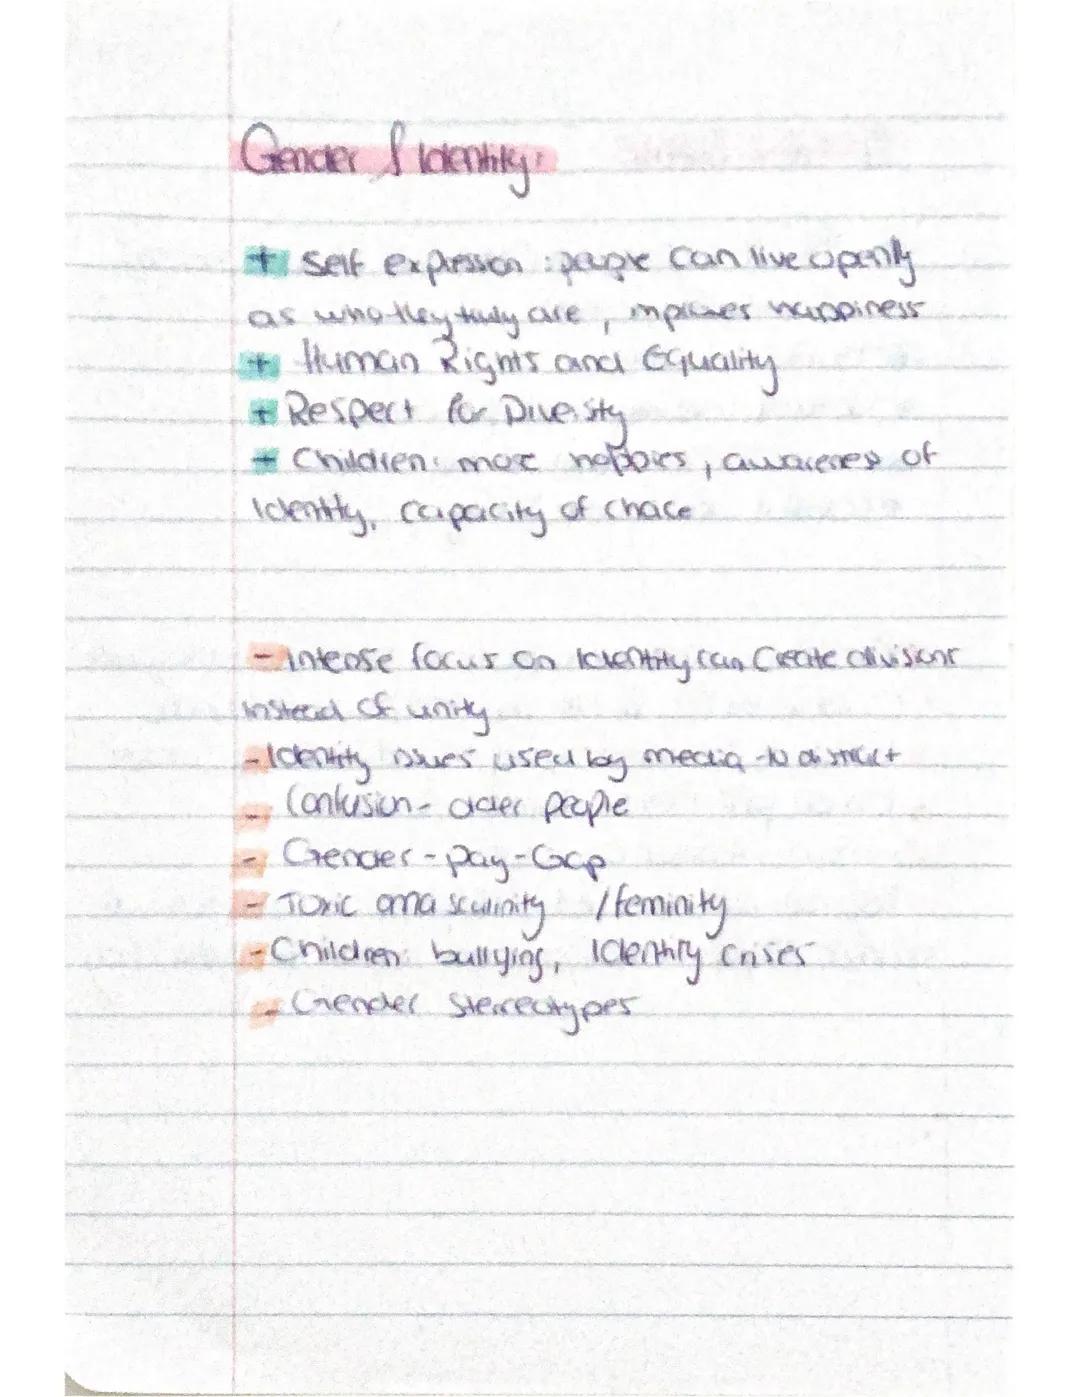 Gender & Identity:
+ Self expression : people can live openly
as who they truly are , improves happiness
+ Human Rights and Equality
+ Respect for Diversity
+ Children: more hobbies , awareness of
Identity, capacity of choice
- Intense focus on Identity can Create divisions
instead of unity
- Identity issues used by media to distract
- Confusion - older people
- Gender - pay - Gap
- Toxic masculinity / feminity
- Children: bullying, Identity crises
- Gender Stereotypes